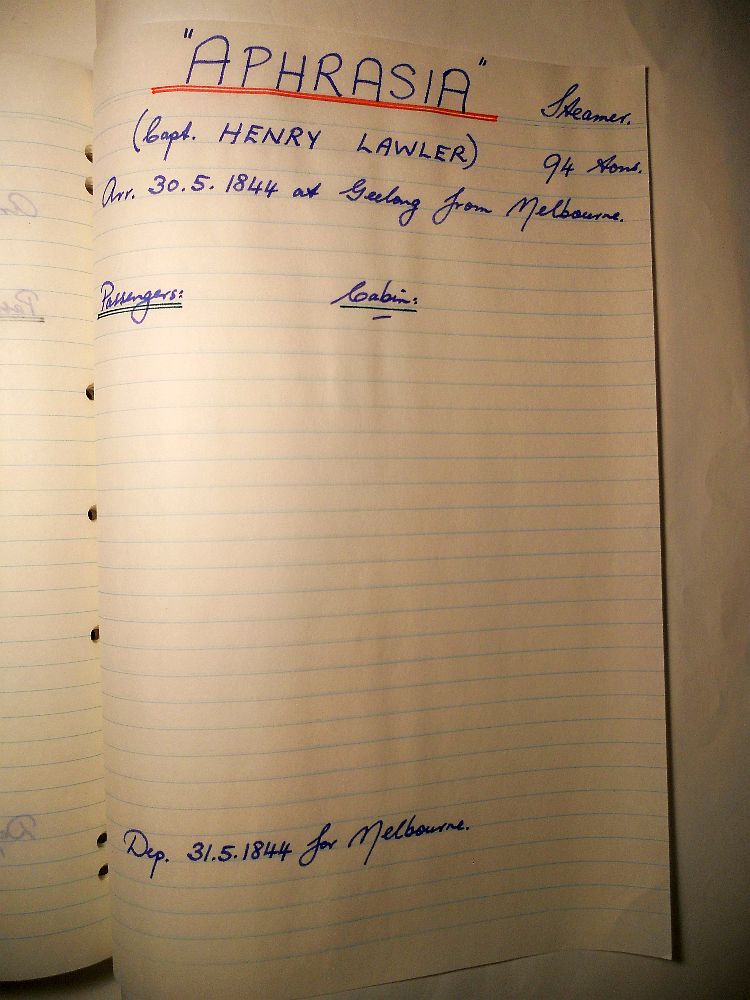 "APHRASIA"
Steamer.
(Capt. HENRY LAWLER)
94 tons.
Arr. 30.5.1844 at Geelong from Melbourne.
Passengers: Cabin:
Dep. 31.5.1844 for Melbourne.